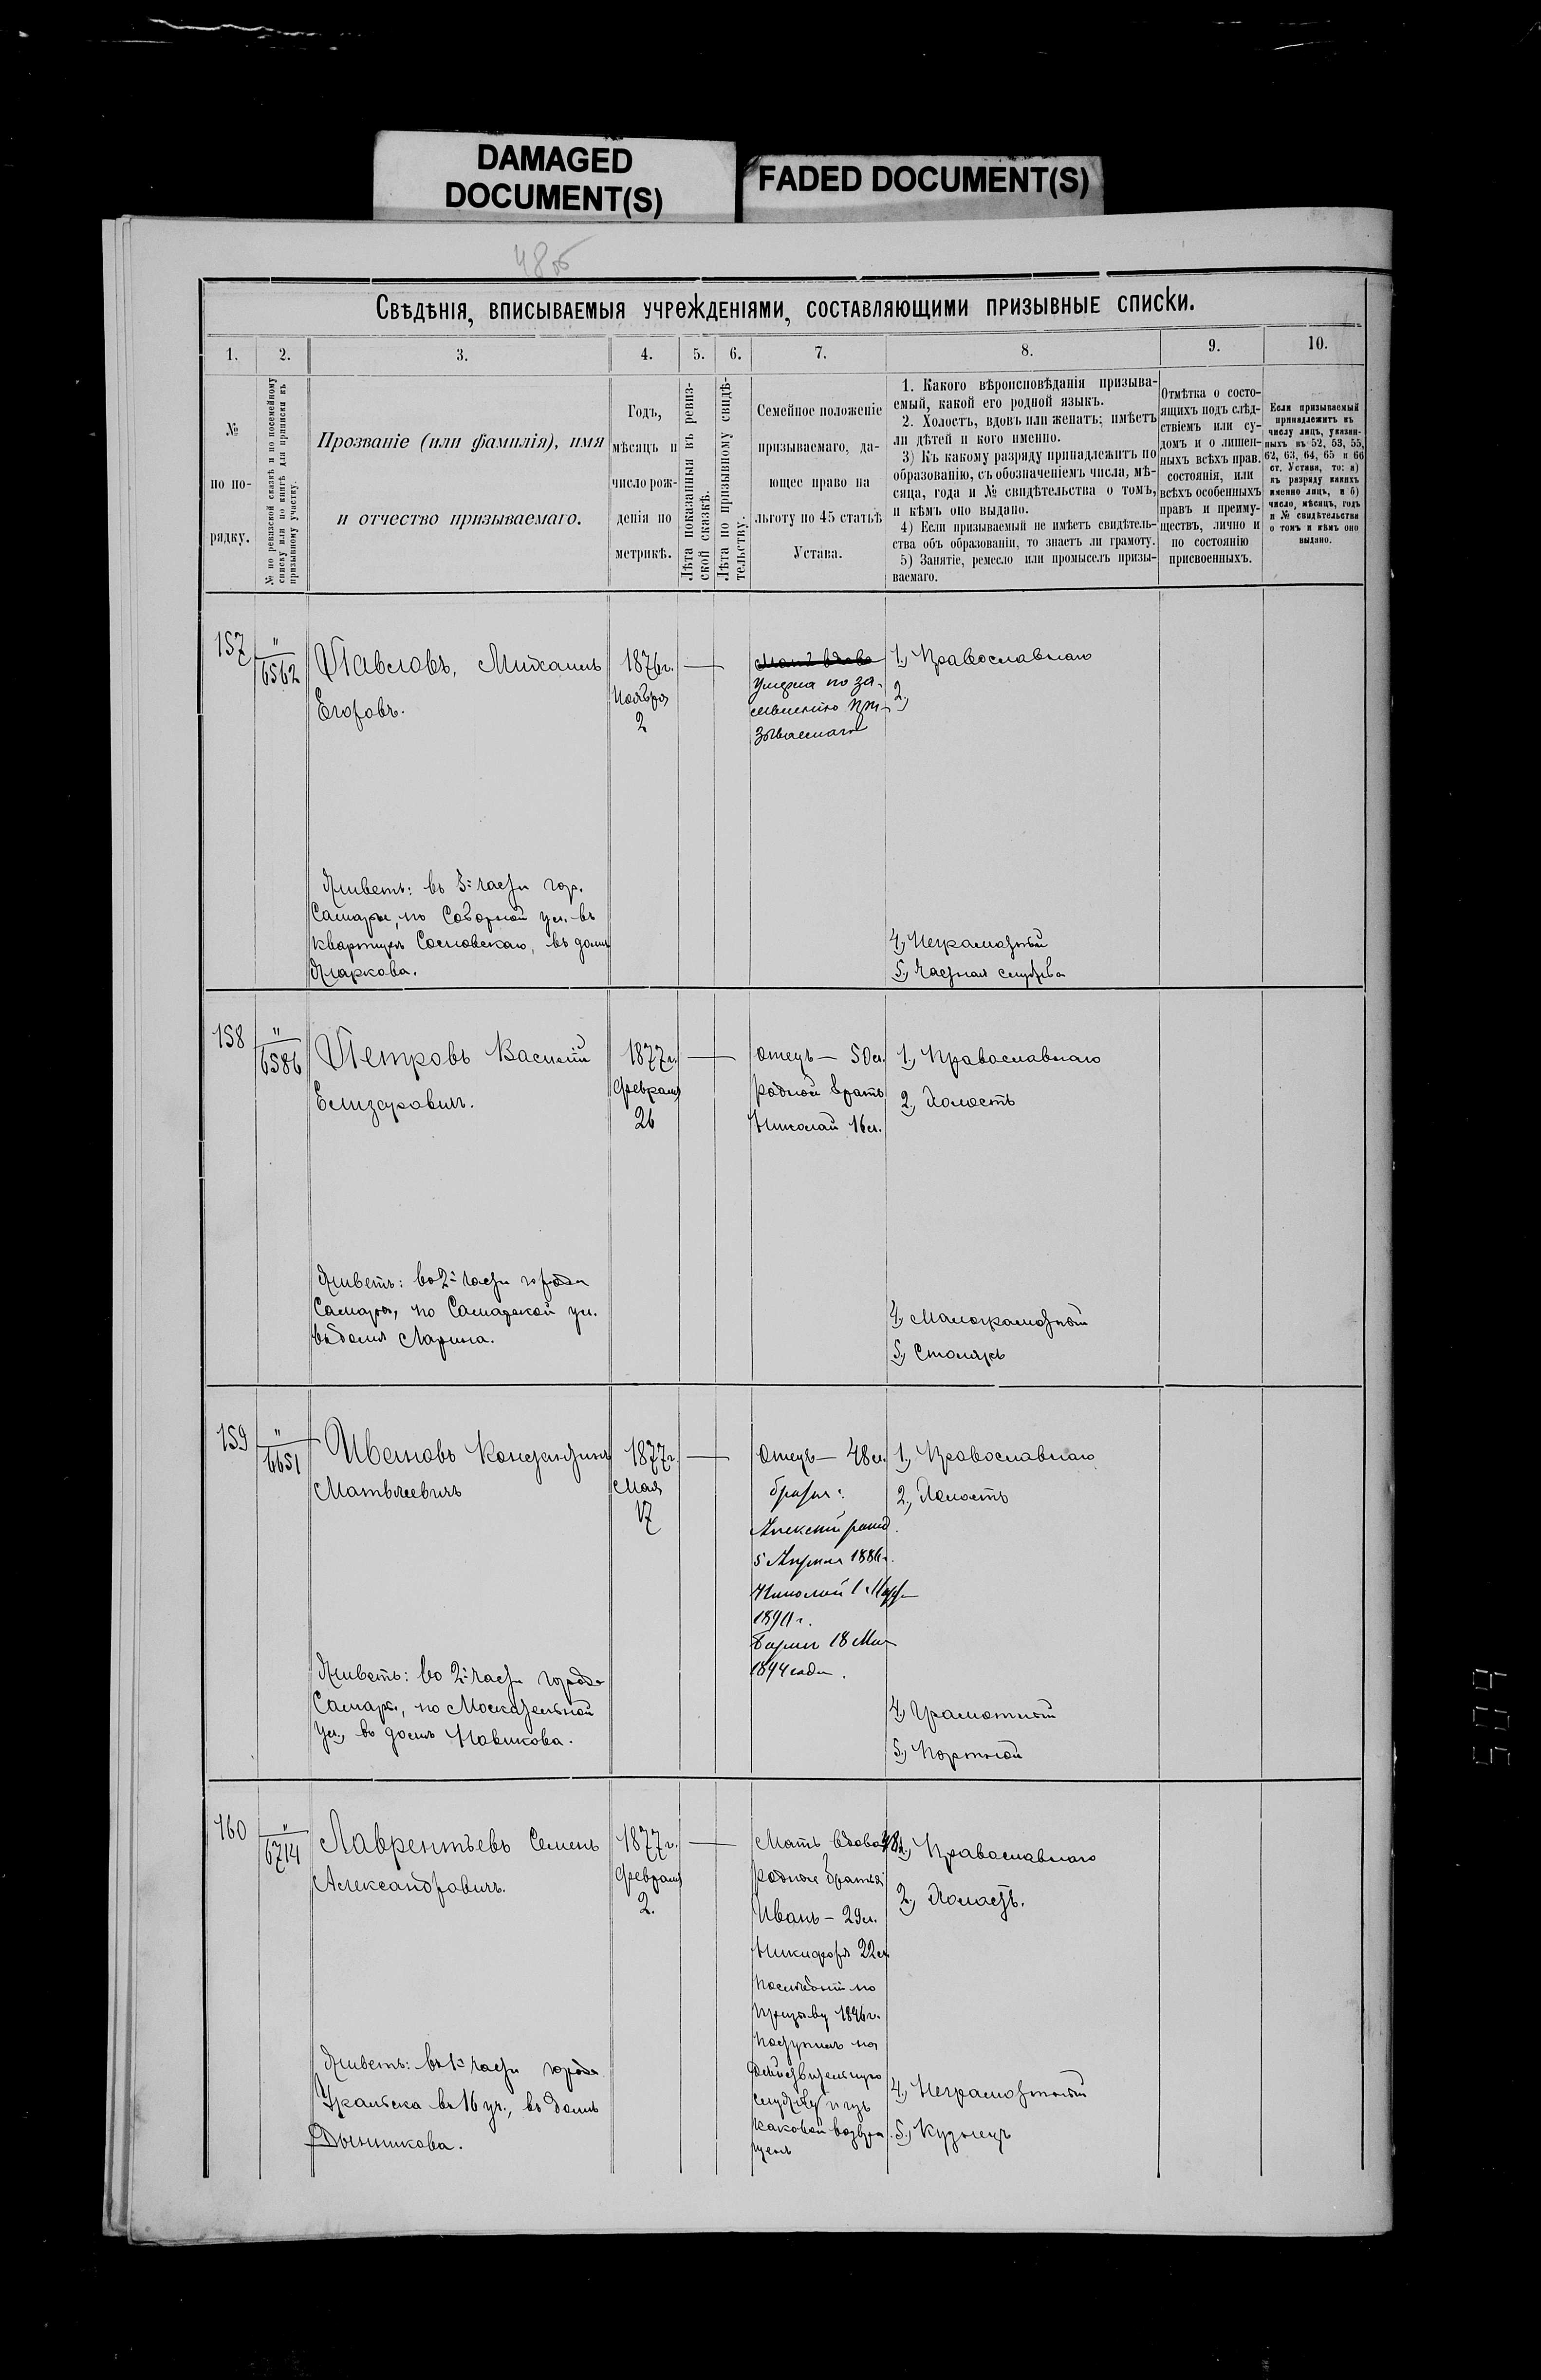 DAMAGED
DOCUMENT(S)
FADED DOCUMENT(S)
48об
Свѣдѣнія, вписываемыя учрежденіями, составляющими призывные списки.
1.
2.
3.
4.
5.
6.
7.
8.
9.
10.
№
по по-
рядку.
№ по ревизской сказкѣ и по посемейному
списку или по книгѣ для приписки къ
призывному участку.
Прозваніе (или фамилія), имя
и отчество призываемаго.
Годъ,
мѣсяцъ и
число рож-
денія по
метрикѣ.
Лѣта показанныя въ ревиз-
ской сказкѣ.
Лѣта по призывному свидѣ-
тельству.
Семейное положеніе
призываемаго, да-
ющее право на
льготу по 45 статьѣ
Устава.
1. Какого вѣроисповѣданія призыва-
емый, какой его родной языкъ.
2. Холостъ, вдовъ или женатъ; имѣетъ
ли дѣтей и кого именно.
3) Къ какому разряду принадлежитъ по
образованію, съ обозначеніемъ числа, мѣ-
сяца, года и № свидѣтельства о томъ,
и кѣмъ оно выдано.
4) Если призываемый не имѣетъ свидѣтель-
ства объ образованіи, то знаетъ ли грамоту.
5) Занятіе, ремесло или промыселъ призы-
ваемаго.
Отмѣтка о состо-
ящихъ подъ слѣд-
ствіемъ или су-
домъ и о лишен-
ныхъ всѣхъ прав.
состоянія, или
всѣхъ особенныхъ
правъ и преиму-
ществъ, лично и
по состоянію
присвоенныхъ.
Если призываемый
принадлежитъ къ
числу лицъ, указан-
ныхъ въ 52, 53, 55,
62, 63, 64, 65 и 66
ст. Устава, то: а)
къ разряду какихъ
именно лицъ, и б)
число, мѣсяцъ, годъ
и № свидѣтельства
о томъ и кѣмъ оно
выдано.
157
"
6562
Павловъ, Михаилъ
Егоровъ.
1876г.
Ноября
2
Умерла по за-
явленію при-
зываемаго
1., Православнаго
2.,
Живетъ: въ 3й части гор.
Самары, по Соборной ул. въ
квартирѣ Сосновскаго, въ домѣ
Маркова.
4., Неграмотный
5., Частная служба
158
"
6586
Петровъ Василій
Елизаровичъ.
1877г.
Февраля
26
Отецъ — 50 л.
Родной братъ
Николай 16 л.
1., Православнаго
2., Холостъ
Живетъ: во 2й части города
Самары, по Самарской ул.
въ домѣ Ларина.
4., Малограмотный
5., Столяръ
159
"
6651
Ивановъ Константинъ
Матвѣевичъ
1877г.
Мая
17
Отецъ — 48 л.
братья:
Алексѣй ранд.
5 Апрѣля 1886г.
Николай 1 Мар
1891г.
18 Мая
1894 года.
1., Православнаго
2., Холостъ
Живетъ: во 2й части города
Самары, по Москательной
ул., въ домѣ Новикова.
4., Грамотный
5., Портной
160
"
6714
Лаврентьевъ Семенъ
Александровичъ.
1877г.
Февраля
2.
Мать вдова 48 л.
родные братья:
Иванъ — 29 л.
Никифоръ 22 л.
Послѣдній по
призыву 1896г.
поступилъ на
дѣйствительную
службу и изъ
каковой возвра-
щенъ
1., Православнаго
2., Холостъ.
Живетъ: въ 1й части города
Уральска въ 16 уч., въ домѣ
Дынникова.
4., Неграмотный
5., Кузнецъ
509